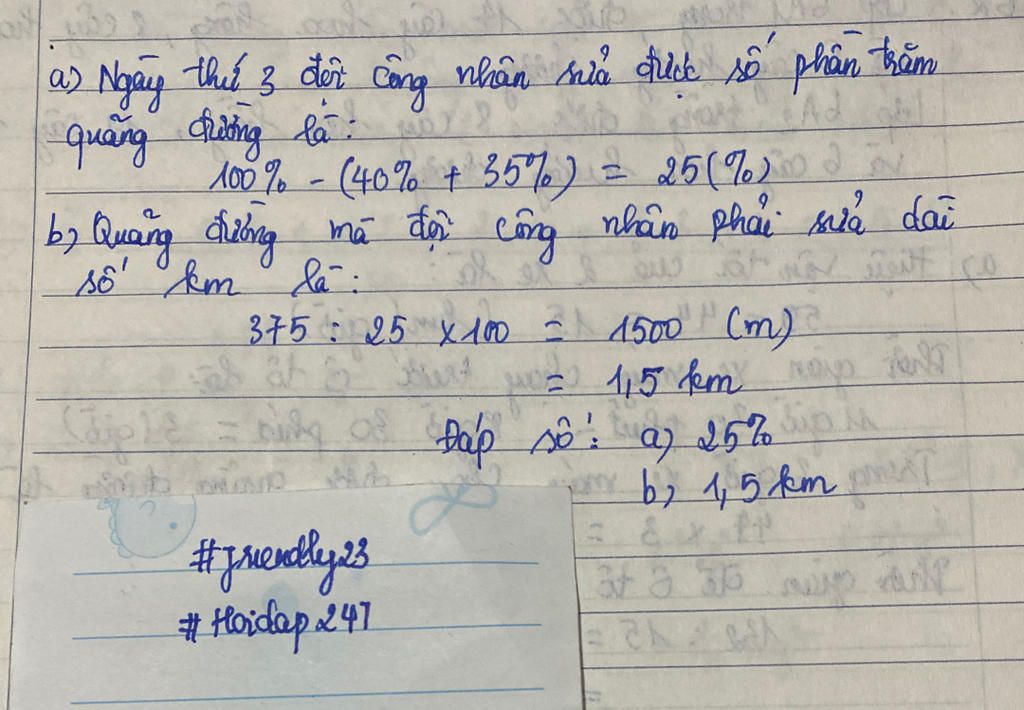 a) Ngày thứ 3 đội công nhân sửa được số phần trăm
quãng đường là:
100% - (40% + 35%) = 25(%)
b) Quãng đường mà đội công nhân phải sửa dài
số km là:
375 : 25 x 100 = 1500 (m)
= 1,5 km
Đáp số: a) 25%
b) 1,5 km
#friendly23
#Hoidap247